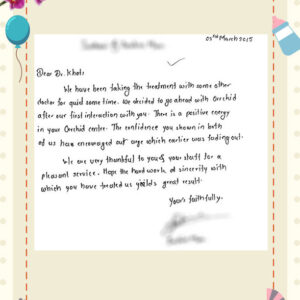 03rd March 2015
Dear Dr. Khole
We have been taking the treatment with some other
doctor for quid some time. We decided to go ahead with Orchid
after our first interaction with you. There is a positive energy
in your Orchid centre. The confidence you shown in both
of us have encouraged out urge which earlier was fading out.
We are very thankful to you & your staff for a
pleasant service. Hope the hard work & sincerity with
which you have treated us yields great result.
Yours faithfully.